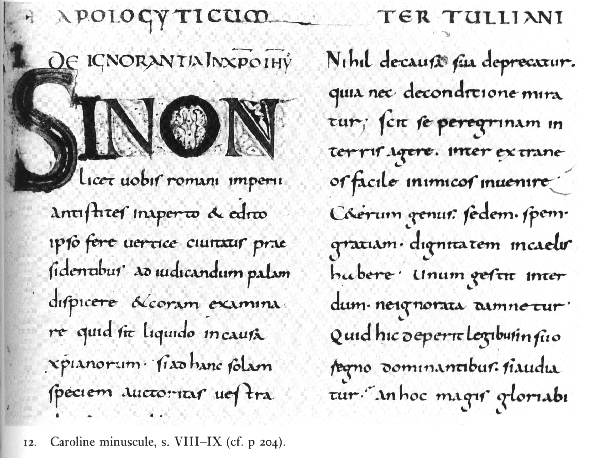 APOLOGYTICUM TERTULLIANI
DE IGNORANTIA IN XPO IHU
SI NON
licet uobis romani imperii
antistites inaperto & edito
ipso fere uertice ciuitatis prae
sidentibus ad iudicandum palam
dispicere & coram examina
re quid sit liquido in causa
xpianorum · si ad hanc solam
speciem auctoritas uestra
Nihil de causa sua deprecatur.
quia nec de conditione mira
tur; scit se peregrinam in
terris agere. inter extrane
os facile inimicos inuenire
C&erum genus. sedem. spem.
gratiam. dignitatem in caelis
habere. Unum gestit inter
dum. ne ignorata damnetur.
Quid hic deperit legibus in suo
regno dominantibus. si audia
tur. an hoc magis gloriabi
12. Caroline minuscule, s. VIII–IX (cf. p 204).